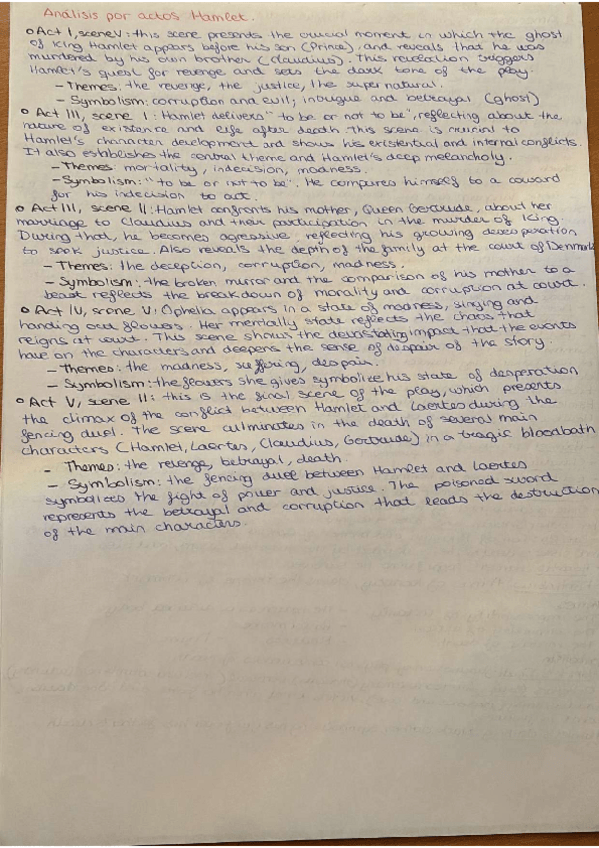 Análisis por actos Hamlet.
o Act I, scene V: this scene presents the crucial moment in which the ghost
of King Hamlet appears before his son (Prince), and reveals that he was
murdered by his own brother (Claudius). This revelation triggers
Hamlet's quest for revenge and sets the dark tone of the play.
- Themes: the revenge, the justice, the supernatural.
- Symbolism: corruption and evil; intrigue and betrayal (ghost)
o Act III, scene I: Hamlet delivers "to be or not to be", reflecting about the
nature of existance and life after death. This scene is crucial to
Hamlet's character development and shows his existential and internal conflicts.
It also establishes the central theme and Hamlet's deep melancholy.
- Themes: mortality, indecision, madness.
- Symbolism: "to be or not to be". He compares himself to a coward
for his indecision to act.
o Act III, scene II: Hamlet confronts his mother, Queen Gertrude, about her
marriage to Claudius and their participation in the murder of King.
During that, he becomes agressive, reflecting his growing desesperation
to seek justice. Also reveals the depth of the family at the court of Denmark
- Themes: the deception, corruption, madness.
- Symbolism: the broken mirror and the comparison of his mother to a
beast reflects the breakdown of morality and corruption at court.
o Act IV, scene V: Ophelia appears in a state of madness, singing and
handing out flowers. Her mentally state reflects the chaos that
reigns at court. This scene shows the devastating impact that the events
have on the characters and deepens the sense of despair of the story.
- Themes: the madness, suffering, despair.
- Symbolism: the flowers she gives symbolize his state of desperation
o Act V, scene II: this is the final scene of the play, which presents
the climax of the conflict between Hamlet and Laertes during the
fencing duel. The scene culminates in the death of several main
characters (Hamlet, Laertes, Claudius, Gertrude) in a tragic bloodbath
- Themes: the revenge, betrayal, death.
- Symbolism: the fencing duel between Hamlet and Laertes
symbolizes the fight of power and justice. The poisoned sword
represents the betrayal and corruption that leads the destruction
of the main characters.